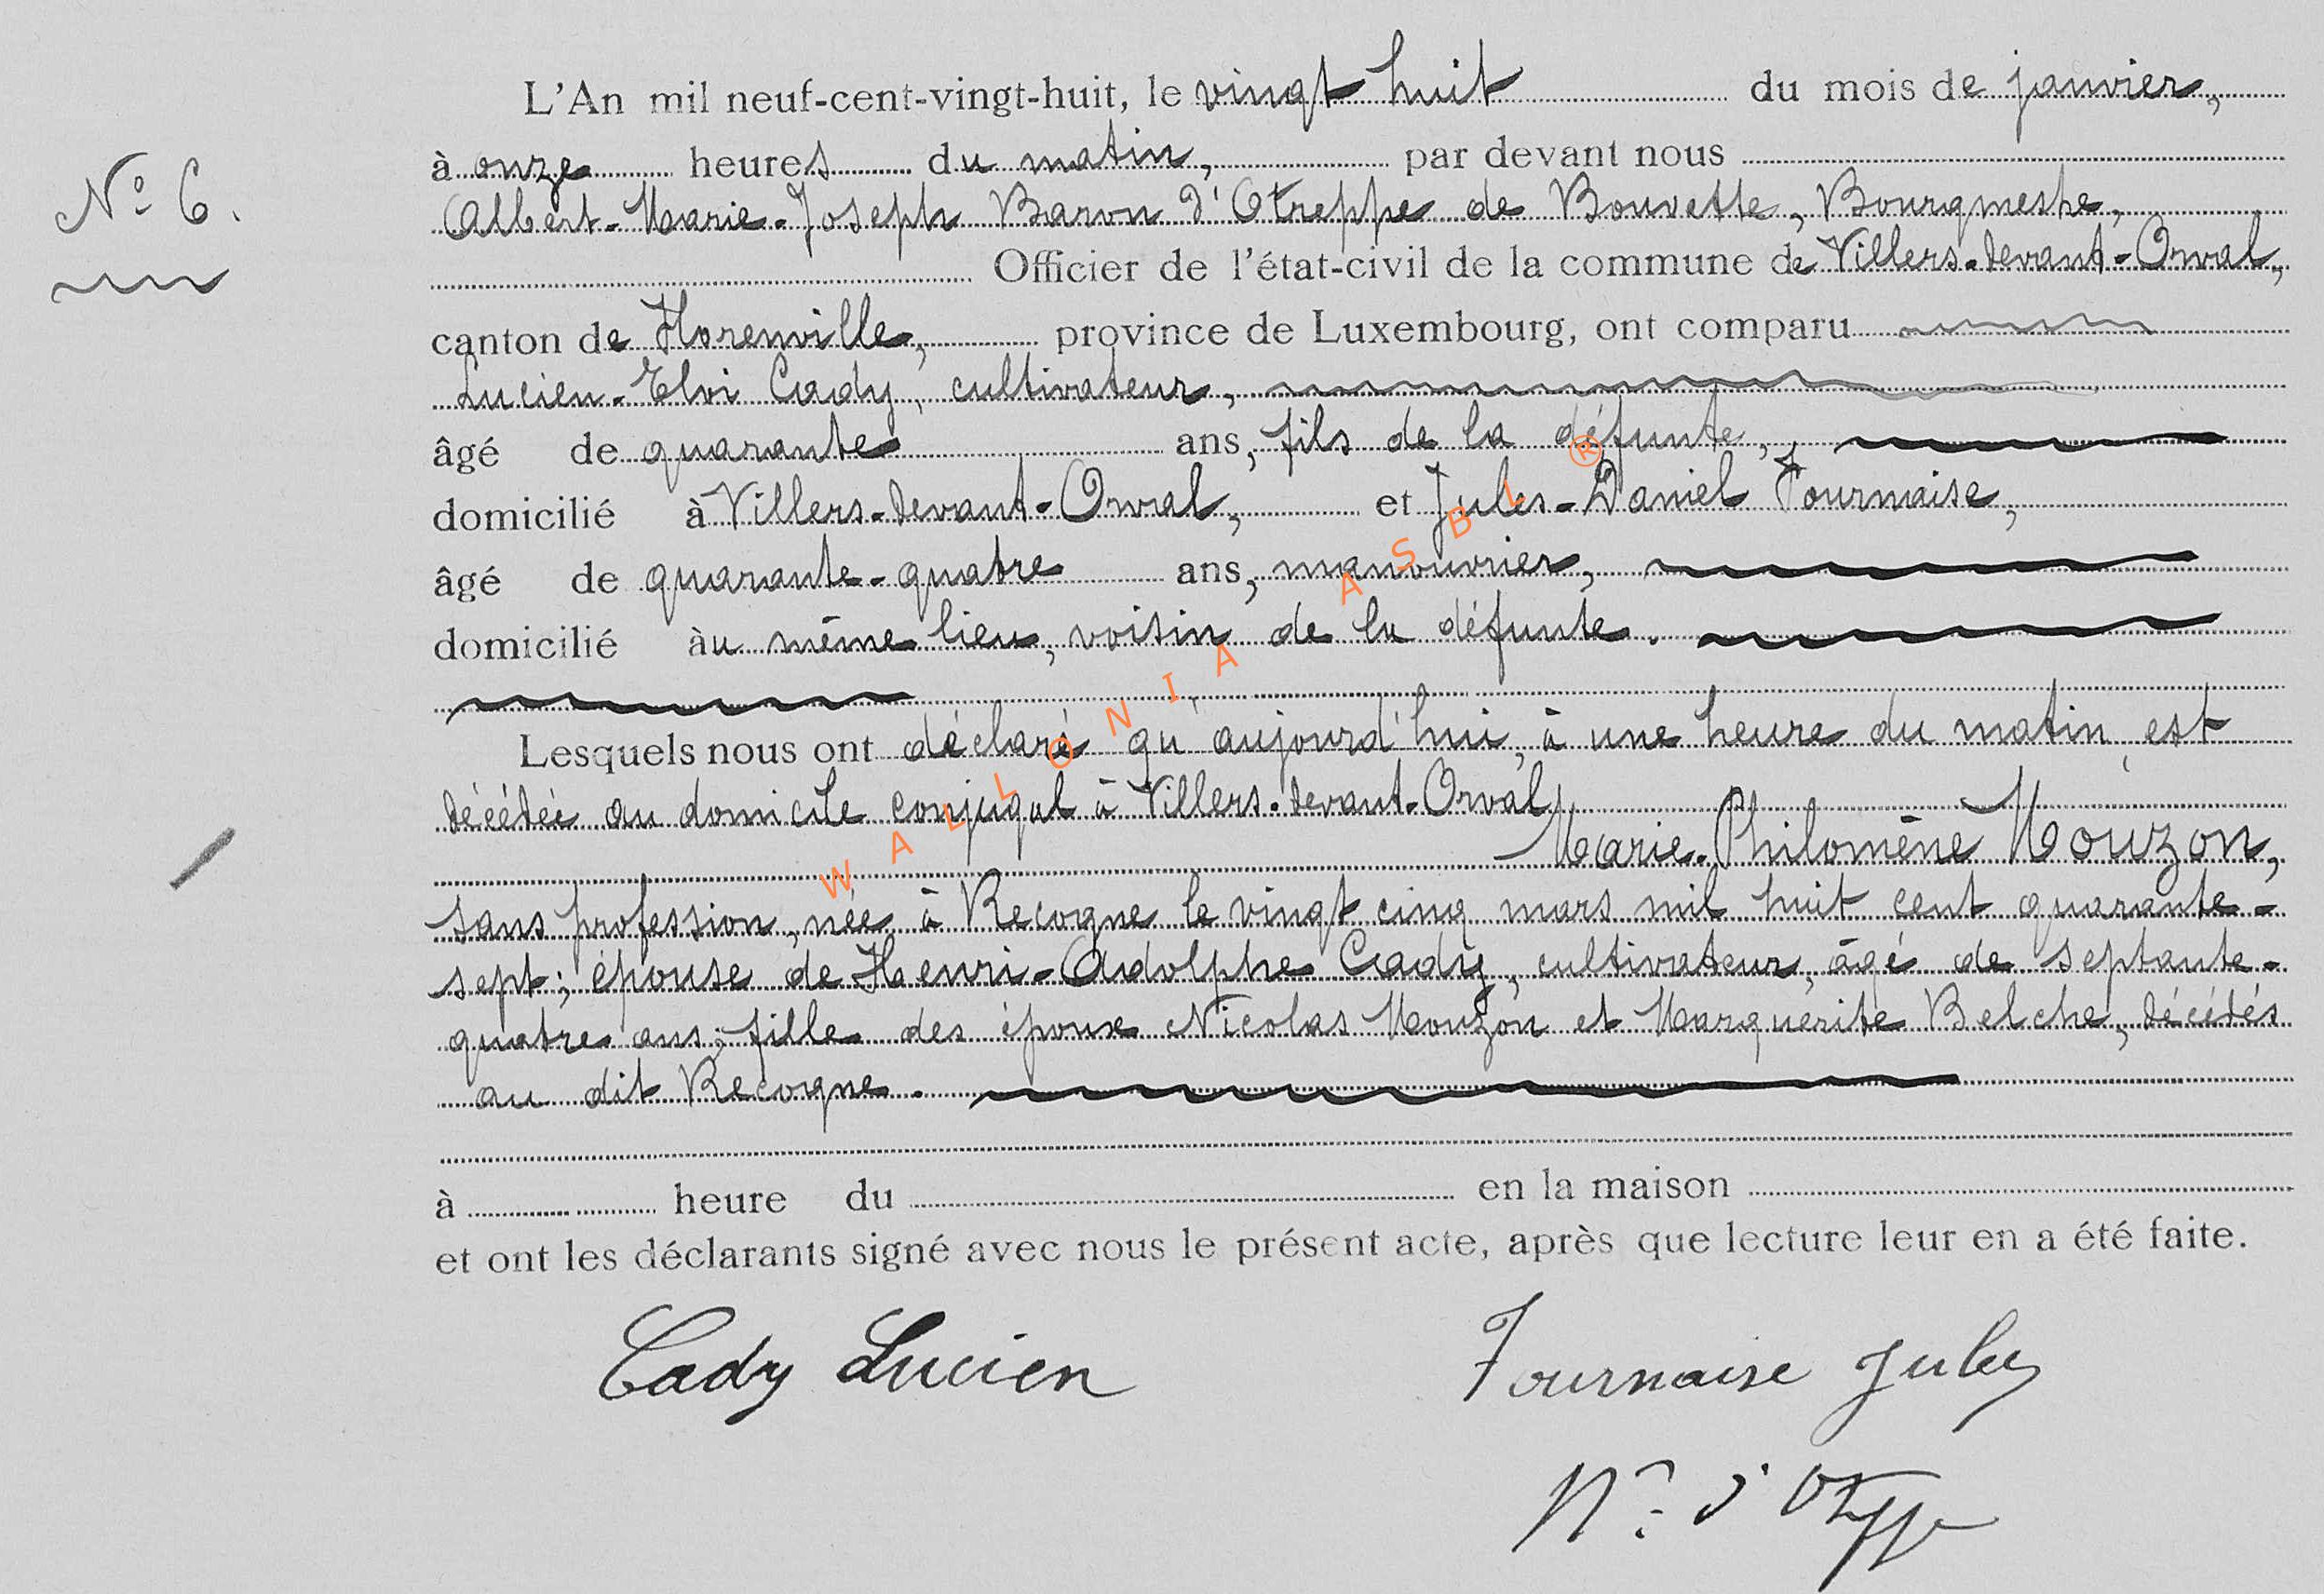 L'An mil neuf-cent-vingt-huit, le vingt huit du mois de janvier,
N° 6.
à onze heures du matin, par devant nous
Albert-Marie-Joseph Baron d'Otreppe de Bouvette, Bourgmestre,
Officier de l'état-civil de la commune de Villers-devant-Orval,
canton de Florenville, province de Luxembourg, ont comparu
Lucien-Elvi Cady, cultivateur,
âgé de quarante ans, fils de la défunte,
domicilié à Villers-devant-Orval, et Jules-Daniel Fournaise,
âgé de quarante-quatre ans, manouvrier,
domicilié àu même lieu, voisin de la défunte.
Lesquels nous ont déclaré qu'aujourd'hui, à une heure du matin, est
décédée au domicile conjugal à Villers-devant-Orval
Marie-Philomène Mouzon,
sans profession, née à Recogne le vingt cinq mars mil huit cent quarante-
sept; épouse de Henri-Adolphe Cady, cultivateur, âgé de septante-
quatre ans; fille des époux Nicolas Mouzon et Marguerite Belche, décédés
au dit Recogne.
à heure du en la maison
et ont les déclarants signé avec nous le présent acte, après que lecture leur en a été faite.
Cady Lucien
Fournaise Jules
d'Otreppe
WALLONIA ASBL ®